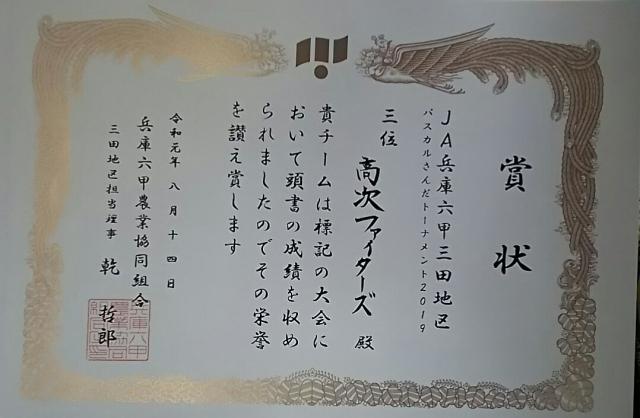 賞状
JA兵庫六甲三田地区
パスカルさんだトーナメント2019
三位
高次ファイターズ 殿
貴チームは標記の大会に
おいて頭書の成績を収め
られましたのでその栄誉
を讃え賞します
令和元年八月十四日
兵庫六甲農業協同組合
三田地区担当理事 乾 哲郎